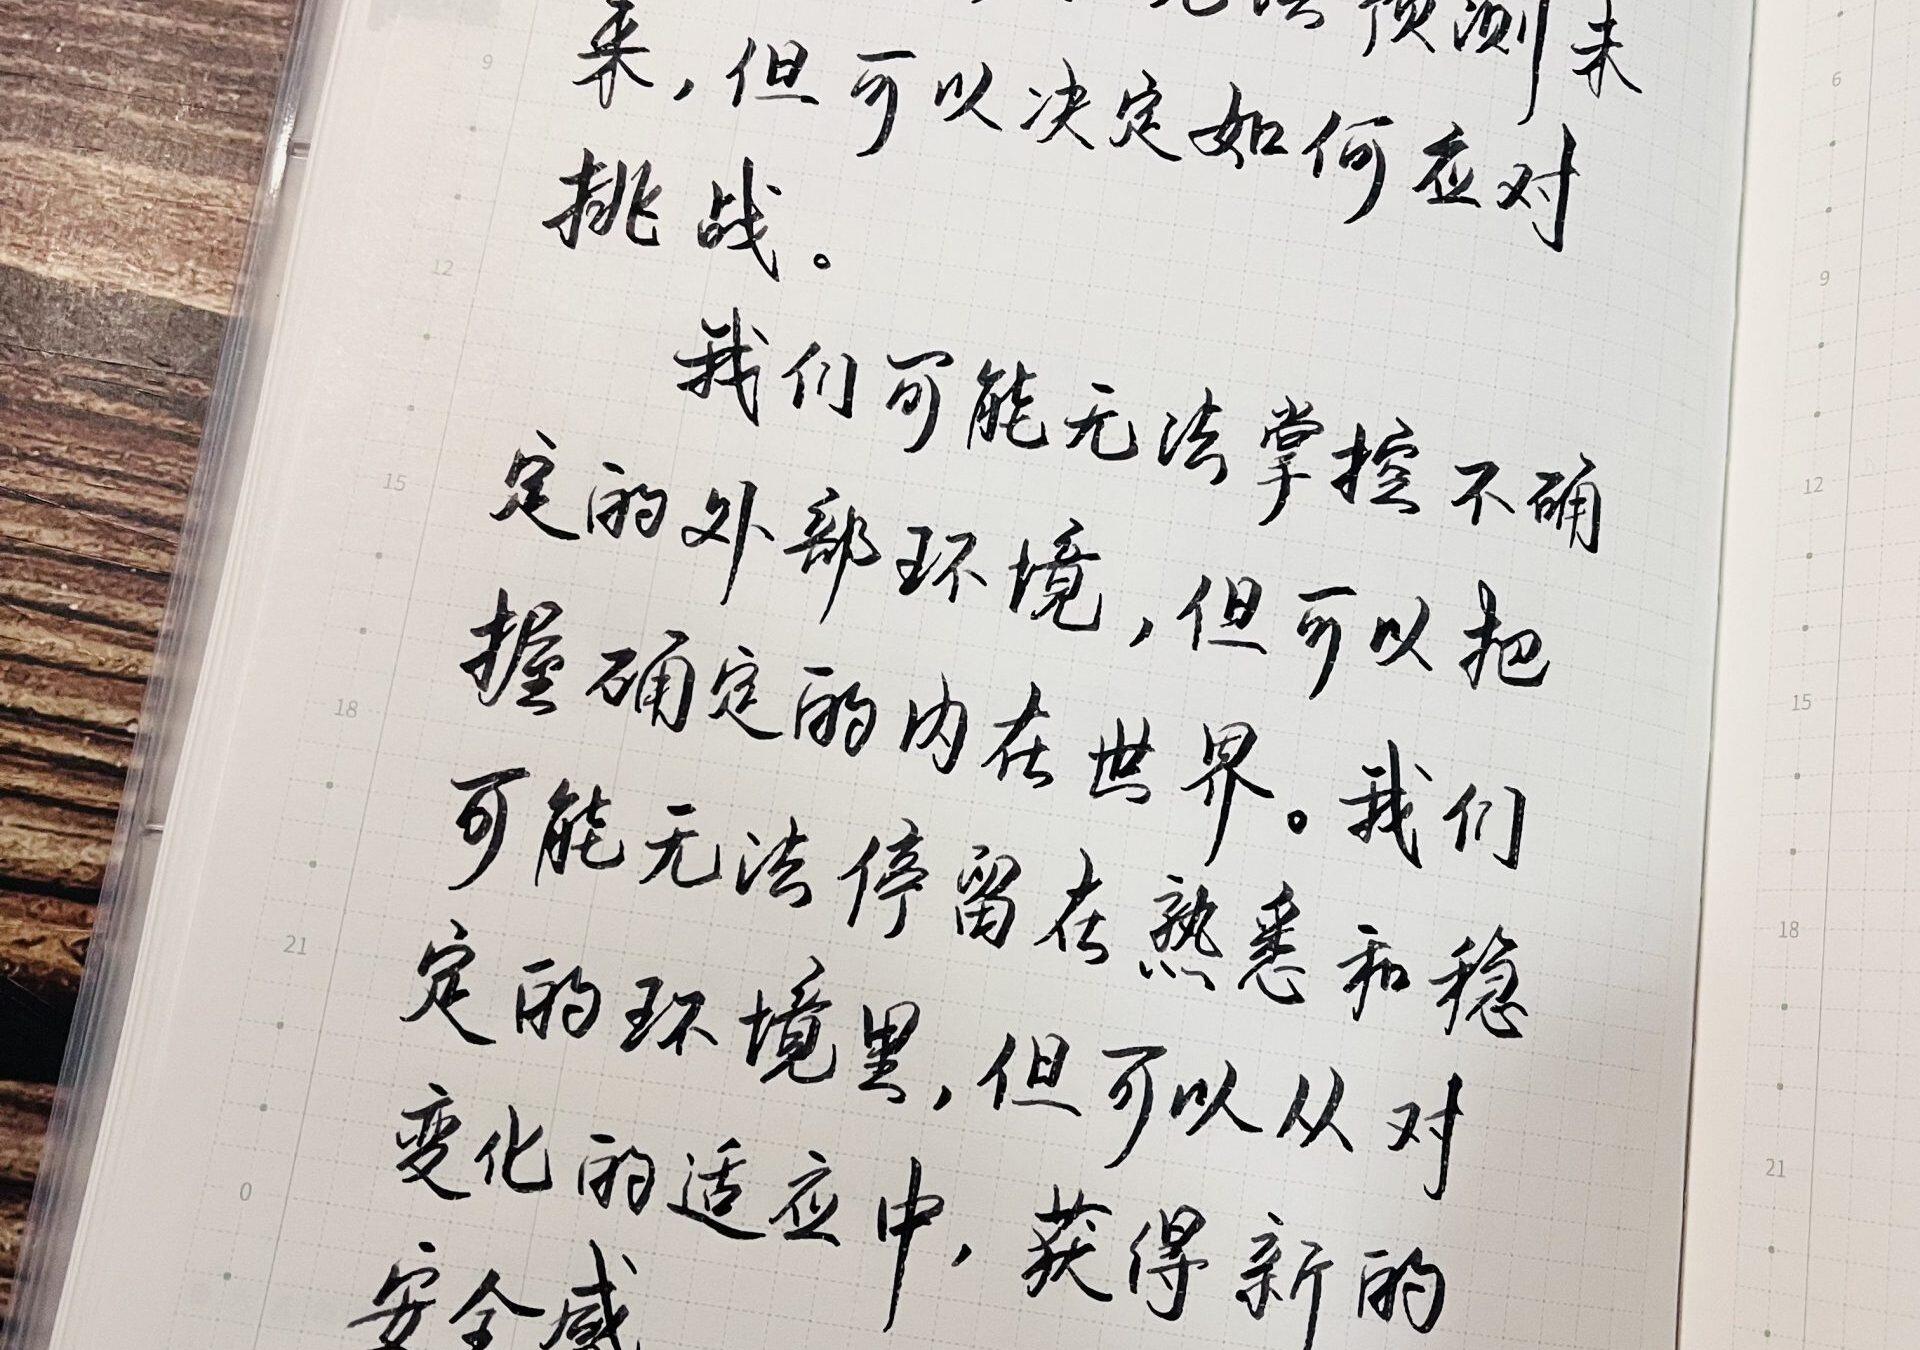 法预测未
来，但可以决定如何应对
挑战。
我们可能无法掌控不确
定的外部环境，但可以把
握确定的内在世界。我们
可能无法停留在熟悉和稳
定的环境里，但可以从对
变化的适应中，获得新的
安全感
9
12
15
18
21
0
6
9
12
15
18
21